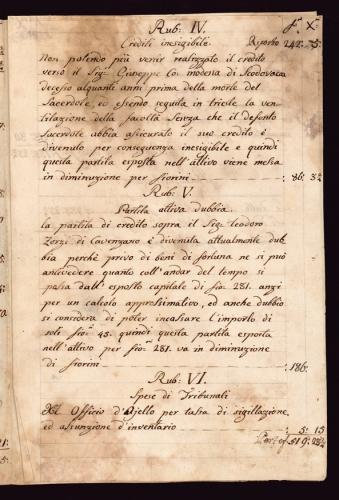 Rub: IV.
f. X.
Crediti inesigibile. Riporto 242: 5:
Non potendo più venir realizzato il credito
verso il Sig: Giuseppe modena di Scodovaca
decesso alquanti anni prima della morte del
Sacerdote, ed essendo seguita in trieste la ven-
tilazione della facoltà Senza che il defonto
Sacerdote abbia assicurato il suo credito è
divenuto per conseguenza inesigibile e quindi
questa partita esposta nell'attivo viene messa
in diminuzione per fiorini : 86:
Rub: V.
Partita attiva dubbia.
La partita di credito sopra il Sig: teodoro
Zorzi di Cavenzano è divenuta attualmente dub
bia perchè privo di beni di fortuna ne si può
antivedere quanto coll'andar del tempo si
possa dall'esposto capitale di fio: 281. anzi
per un calcolo approssimativo, ed anche dubbio
si considera di poter incassare l'importo di
soli fio: 45. quindi questa partita esposta
nell'attivo per fio: 281. va in diminuzione
di fiorini : 186.
Rub: VI.
Spese di Tribunali
Officio d'Ajello per tassa di sigillazione,
ed assunzione d'inventario : 5: 15